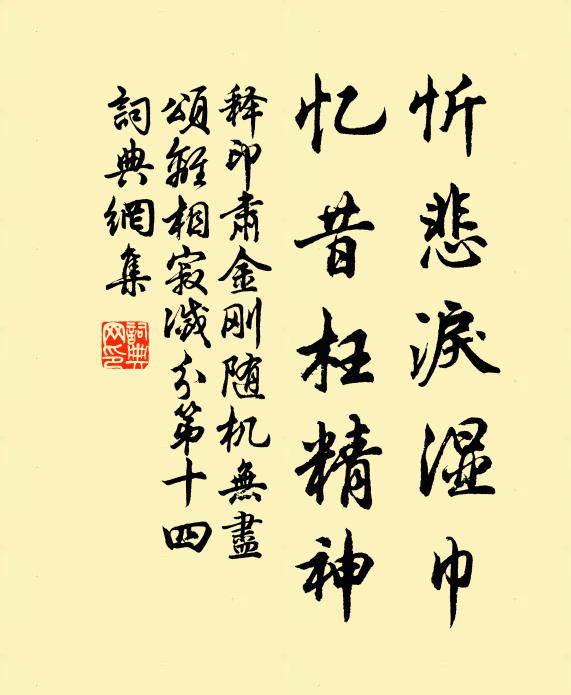 忻悲淚湿巾
忆昔枉精神
释印肃金刚随机無盡
頌離相寂滅分第十四
詞典網集
詞典
网印